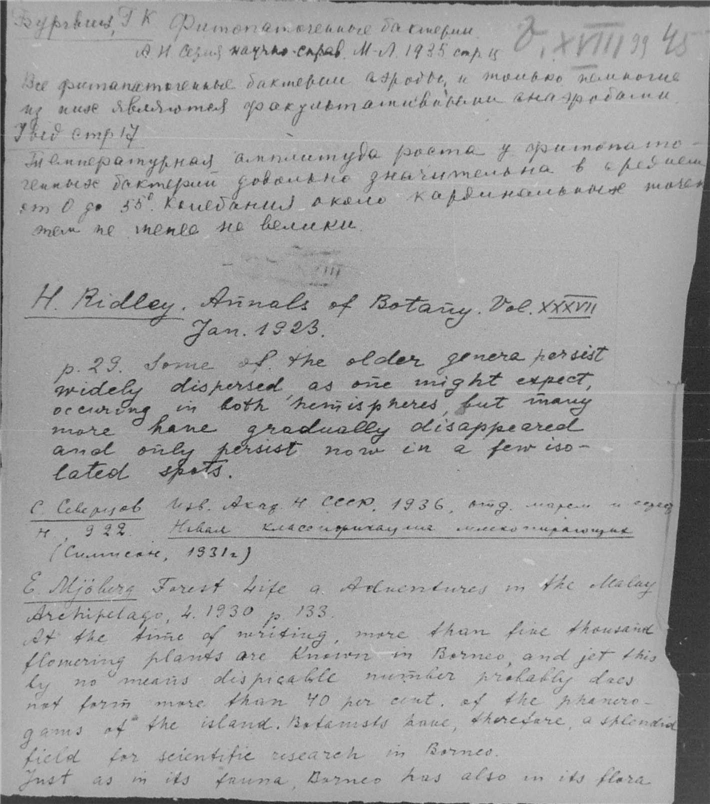 Бургвиц, Г К Фитопатогенные бактерии
А Н серия научно-справ. М-Л. 1935 стр
XVIII 99 45
Все фитапатогенные бактерии аэробы, и только немногие
из них являются факультативными анаэробами
стр 17
Температурная амплитуда роста у фитопато-
генных бактерий довольно значительна в среднем
от 0 до 35°. Колебания около кардинальных точек
тем не менее не велики.
H. Ridley. Annals of Botany. Vol. XXXVII
Jan. 1923.
p. 29. Some of the older genera persist
widely dispersed as one might expect,
occuring in both hemispheres, but many
more have gradually disappeared
and only persist now in a few iso-
lated spots.
С. Северцов Изв. Акад. Н СССР, 1936, отд. матем и
ч, 922 Новая классификация млекопитающих
(Симпсон, 1931г)
E. Mjöberg Forest Life a Adventures in the Malay
Archipelago, L. 1930 p. 133.
At the time of writing, more than five thousand
flowering plants are known in Borneo, and jet this
by no means dispicable number probably does
not form more than 70 per cent. of the phanero-
gams of the island. Botanists have, therefore, a splendid
field for scientific research in Borneo.
Just as in its fauna, Borneo has also in its flora